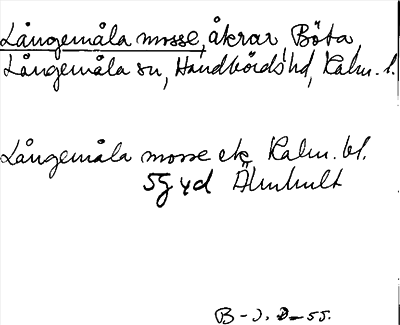 Långemåla mosse, åkrar, Böta
Långemåla sn, Handbörds hd, Kalm. l.
Långemåla mosse ek Kalm. bl.
5G yd Älmhult
B-J. D-55.